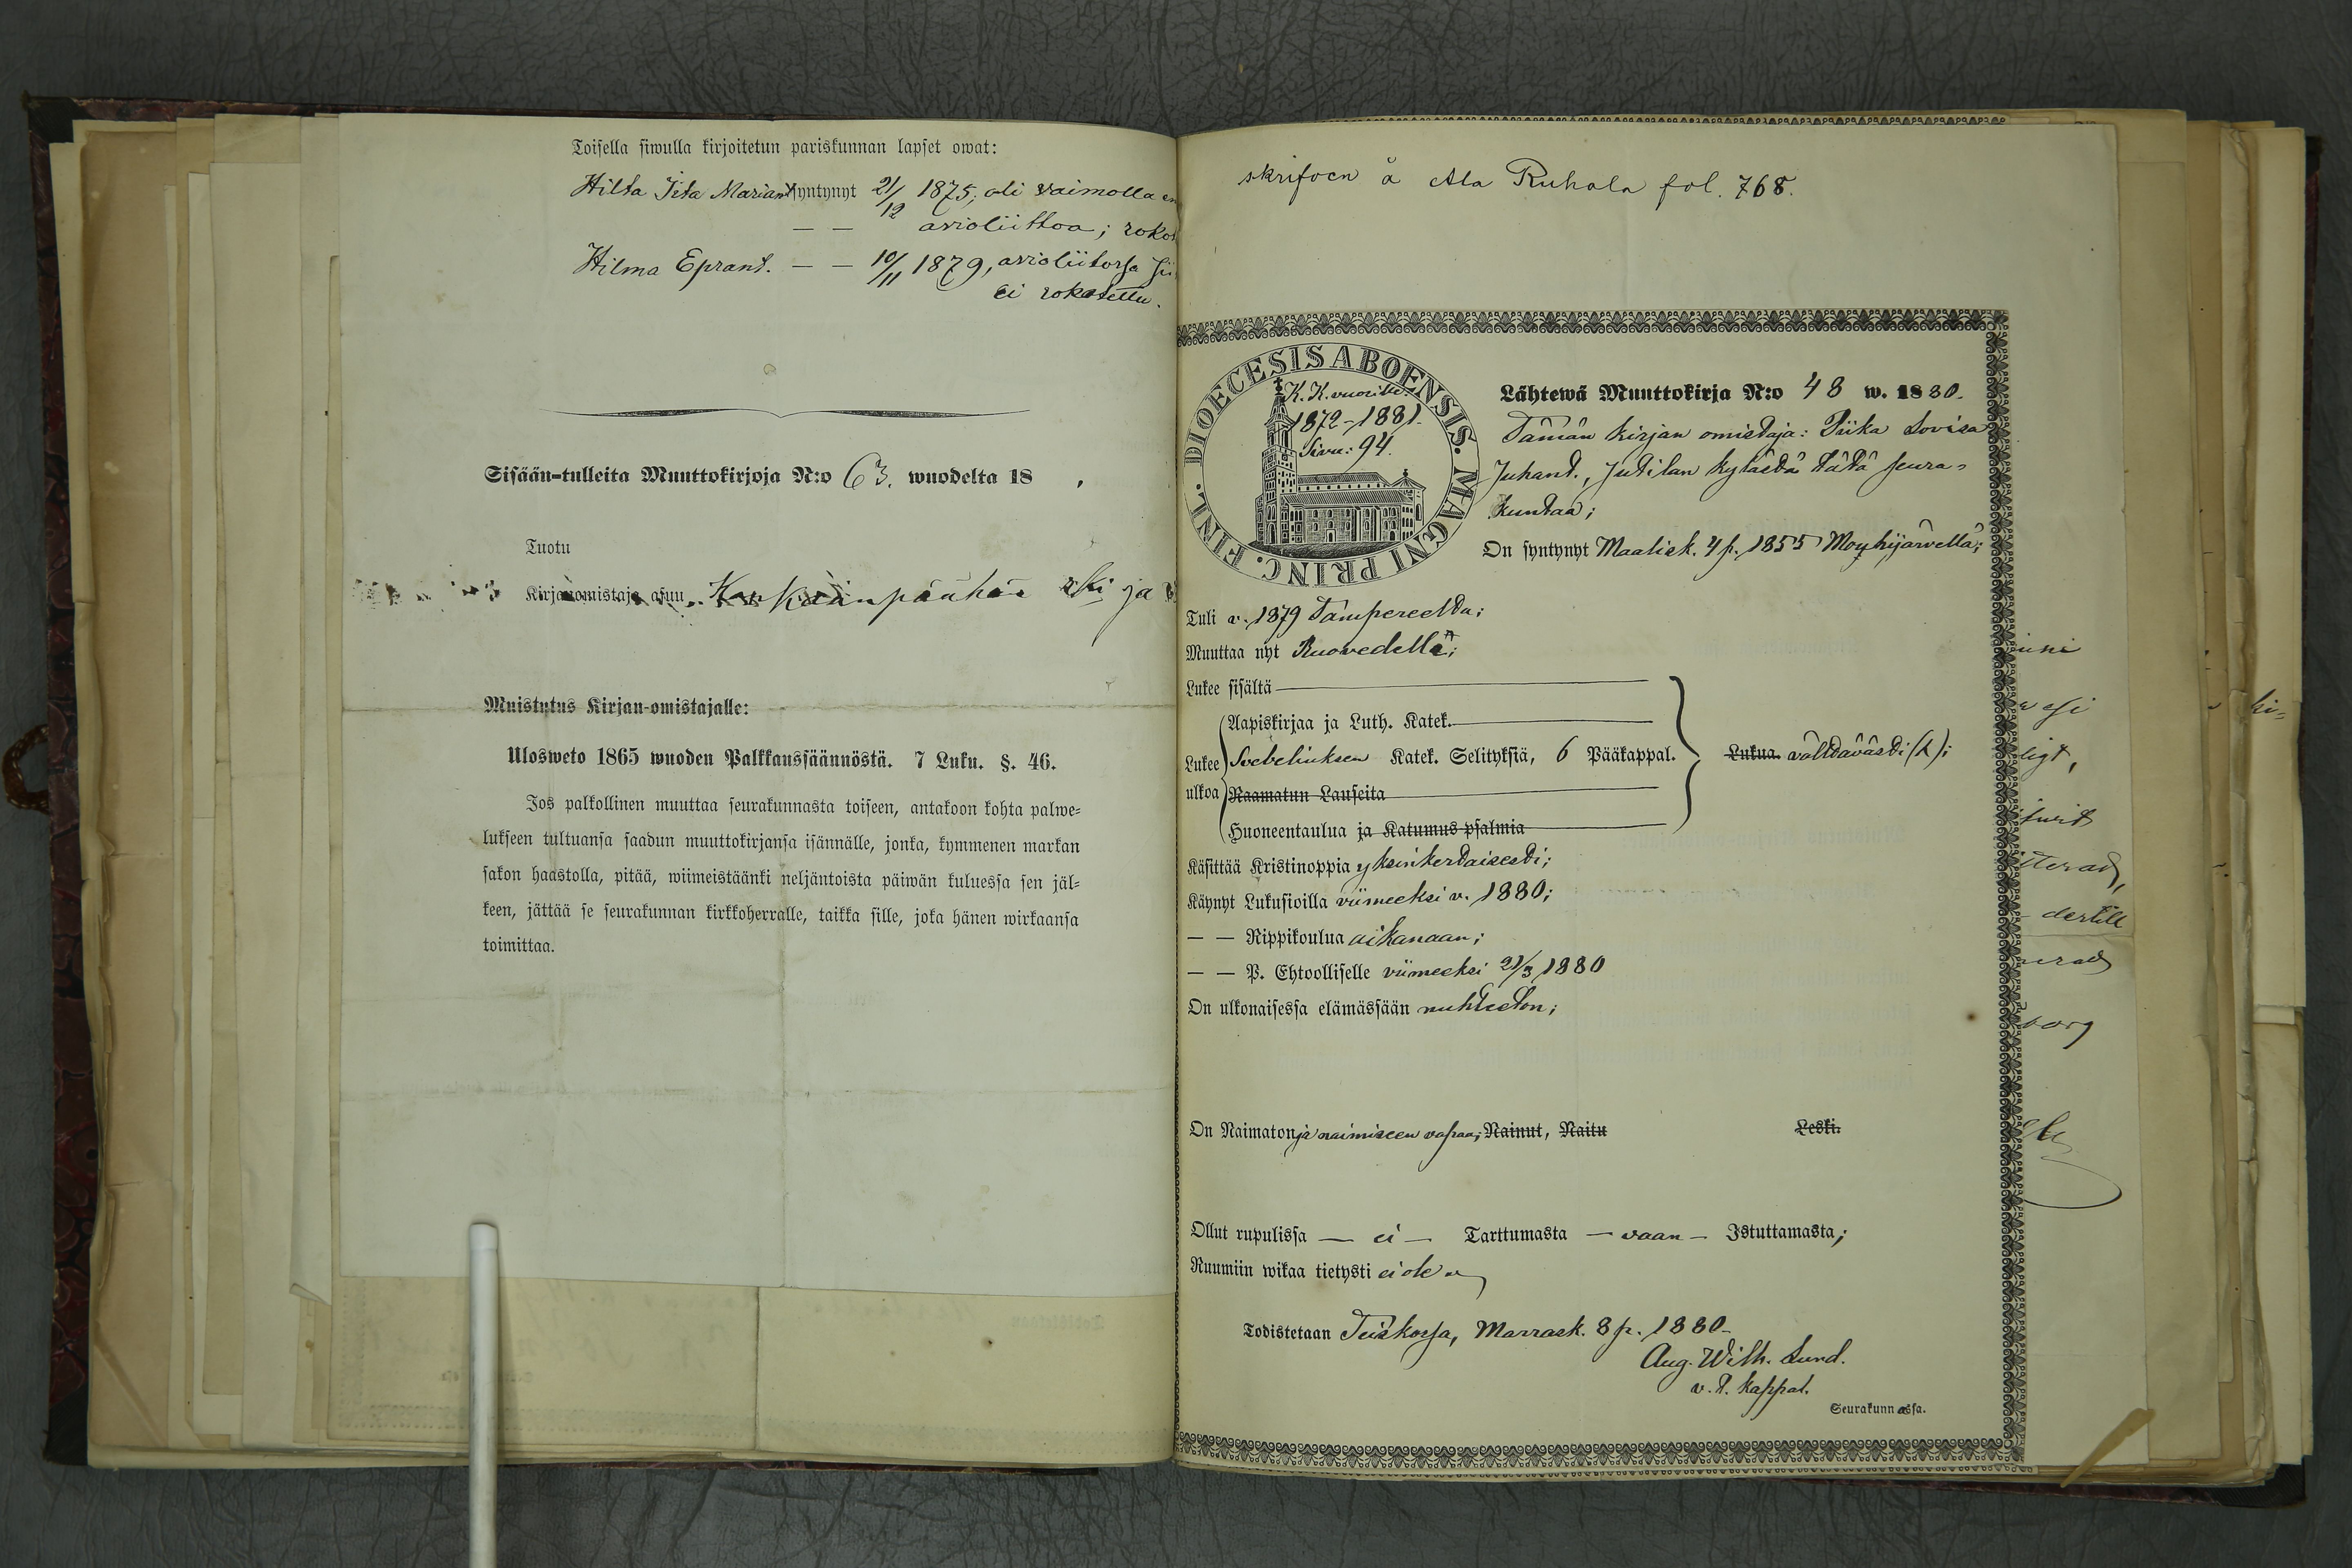 Toisella siwulla kirjoitetun pariskunnan lapset owat:
Hilta Iita Mariant. syntynyt 21/12 1875; oli vaimolla en
— — avioliittoa; roko
Hilma Eprant. — — 10/11 1879, avioliitossa
ei rokotettu.
Sisään-tulleita Muuttokirjoja N:o 63. wuodelta 18 .
Tuotu
Kirjanomistaja asuu Kankaanpäähän ja
Muistutus Kirjan-omistajalle:
Ulosweto 1865 wuoden Palkkaussäännöstä. 7 Luku. §. 46.
Jos palkollinen muuttaa seurakunnasta toiseen, antakoon kohta palwe-
lukseen tultuansa saadun muuttokirjansa isännälle, jonka, kymmenen markan
sakon haastolla, pitää, wiimeistäänki neljäntoista päiwän kuluessa sen jäl-
keen, jättää se seurakunnan kirkkoherralle, taikka sille, joka hänen wirkaansa
toimittaa.
skrifven å Ala Ruhala fol. 768.
DIOECESIS ABOENSIS. MAGNI PRINC. FINL.
K. K. vuosilta
1872-1881.
Sivu: 94.
Lähtewä Muuttokirja N:o 48 w. 1880.
Tämän kirjan omistaja: Piika Lovisa
Juhant., Jutilan kylästä tätä seura-
kuntaa;
On syntynyt Maalisk. 4 p. 1855 Mouhijärvellä;
Tuli v. 1879 Tampereelta;
Muuttaa nyt Ruovedelle;
Lukee sisältä
Aapiskirjaa ja Luth. Katek.
Lukee Svebeliuksen Katek. Selityksiä, 6 Pääkappal. Lukua. välttävästi (h);
ulkoa Raamatun Lauseita
Huoneentaulua ja Katumus psalmia
Käsittää Kristinoppia yksinkertaisesti;
Käynyt Lukusioilla viimeeksi v. 1880;
— — Rippikoulua aikanaan;
— — P. Ehtoolliselle viimeeksi 21/3 1880
On ulkonaisessa elämässään nuhteeton;
On Naimaton ja naimiseen vapaa; Nainut, Naitu Leski.
Ollut rupulissa — ei — Tarttumasta — vaan — Istuttamasta;
Ruumiin wikaa tietysti ei ole
Todistetaan Teiskossa, Marrask. 8 p. 1880.
Aug. Wilh. Lund.
v. t. kappal.
Seurakunnassa.
ligt,
terad,
dertill
borg